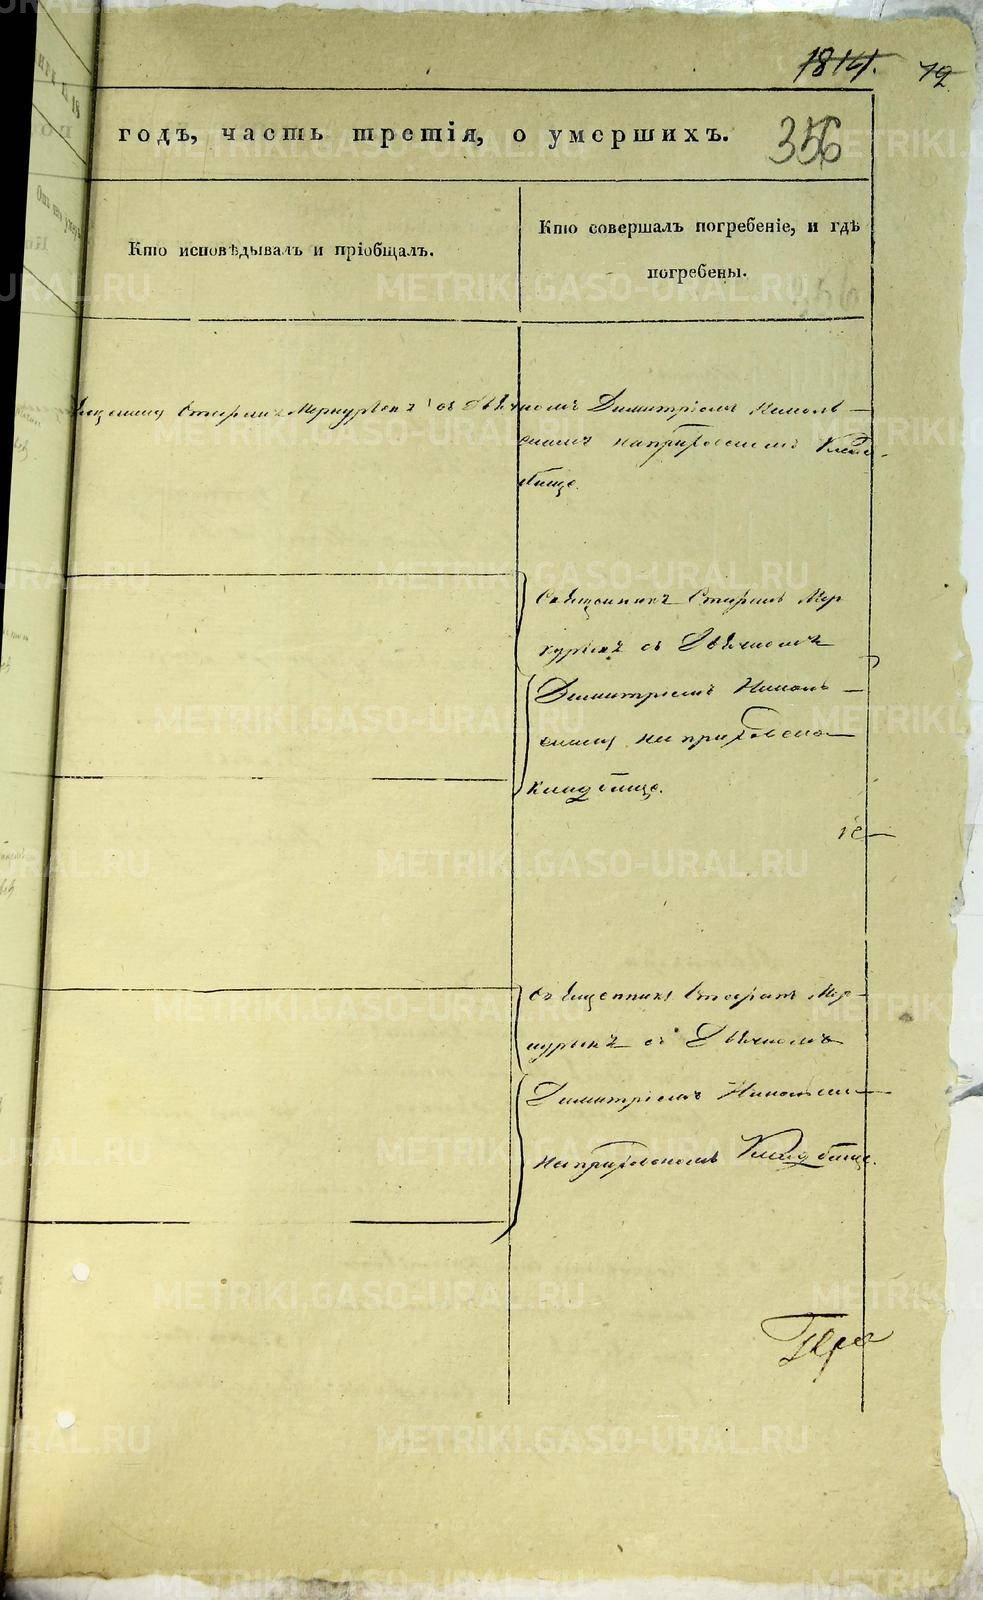 1814. 12
годъ, часть третія, о умершихъ. 356
Кто исповѣдывалъ и пріобщалъ.
Кто совершалъ погребеніе, и гдѣ
погребены.
Священникъ Стефанъ Меркурьевъ съ Дьячкомъ Димитріемъ Николь-
скимъ на приходскомъ Клад-
бище.
Священникъ Стефанъ Мер
курьевъ съ Дьячкомъ
Димитріемъ Николь-
скимъ на приходско
кладбище.
Священникъ Стефанъ Мер-
курьевъ съ Дьячкомъ
Димитріемъ Никольски
на приходскомъ Кладбище.
METRIKI.GASO-URAL.RU